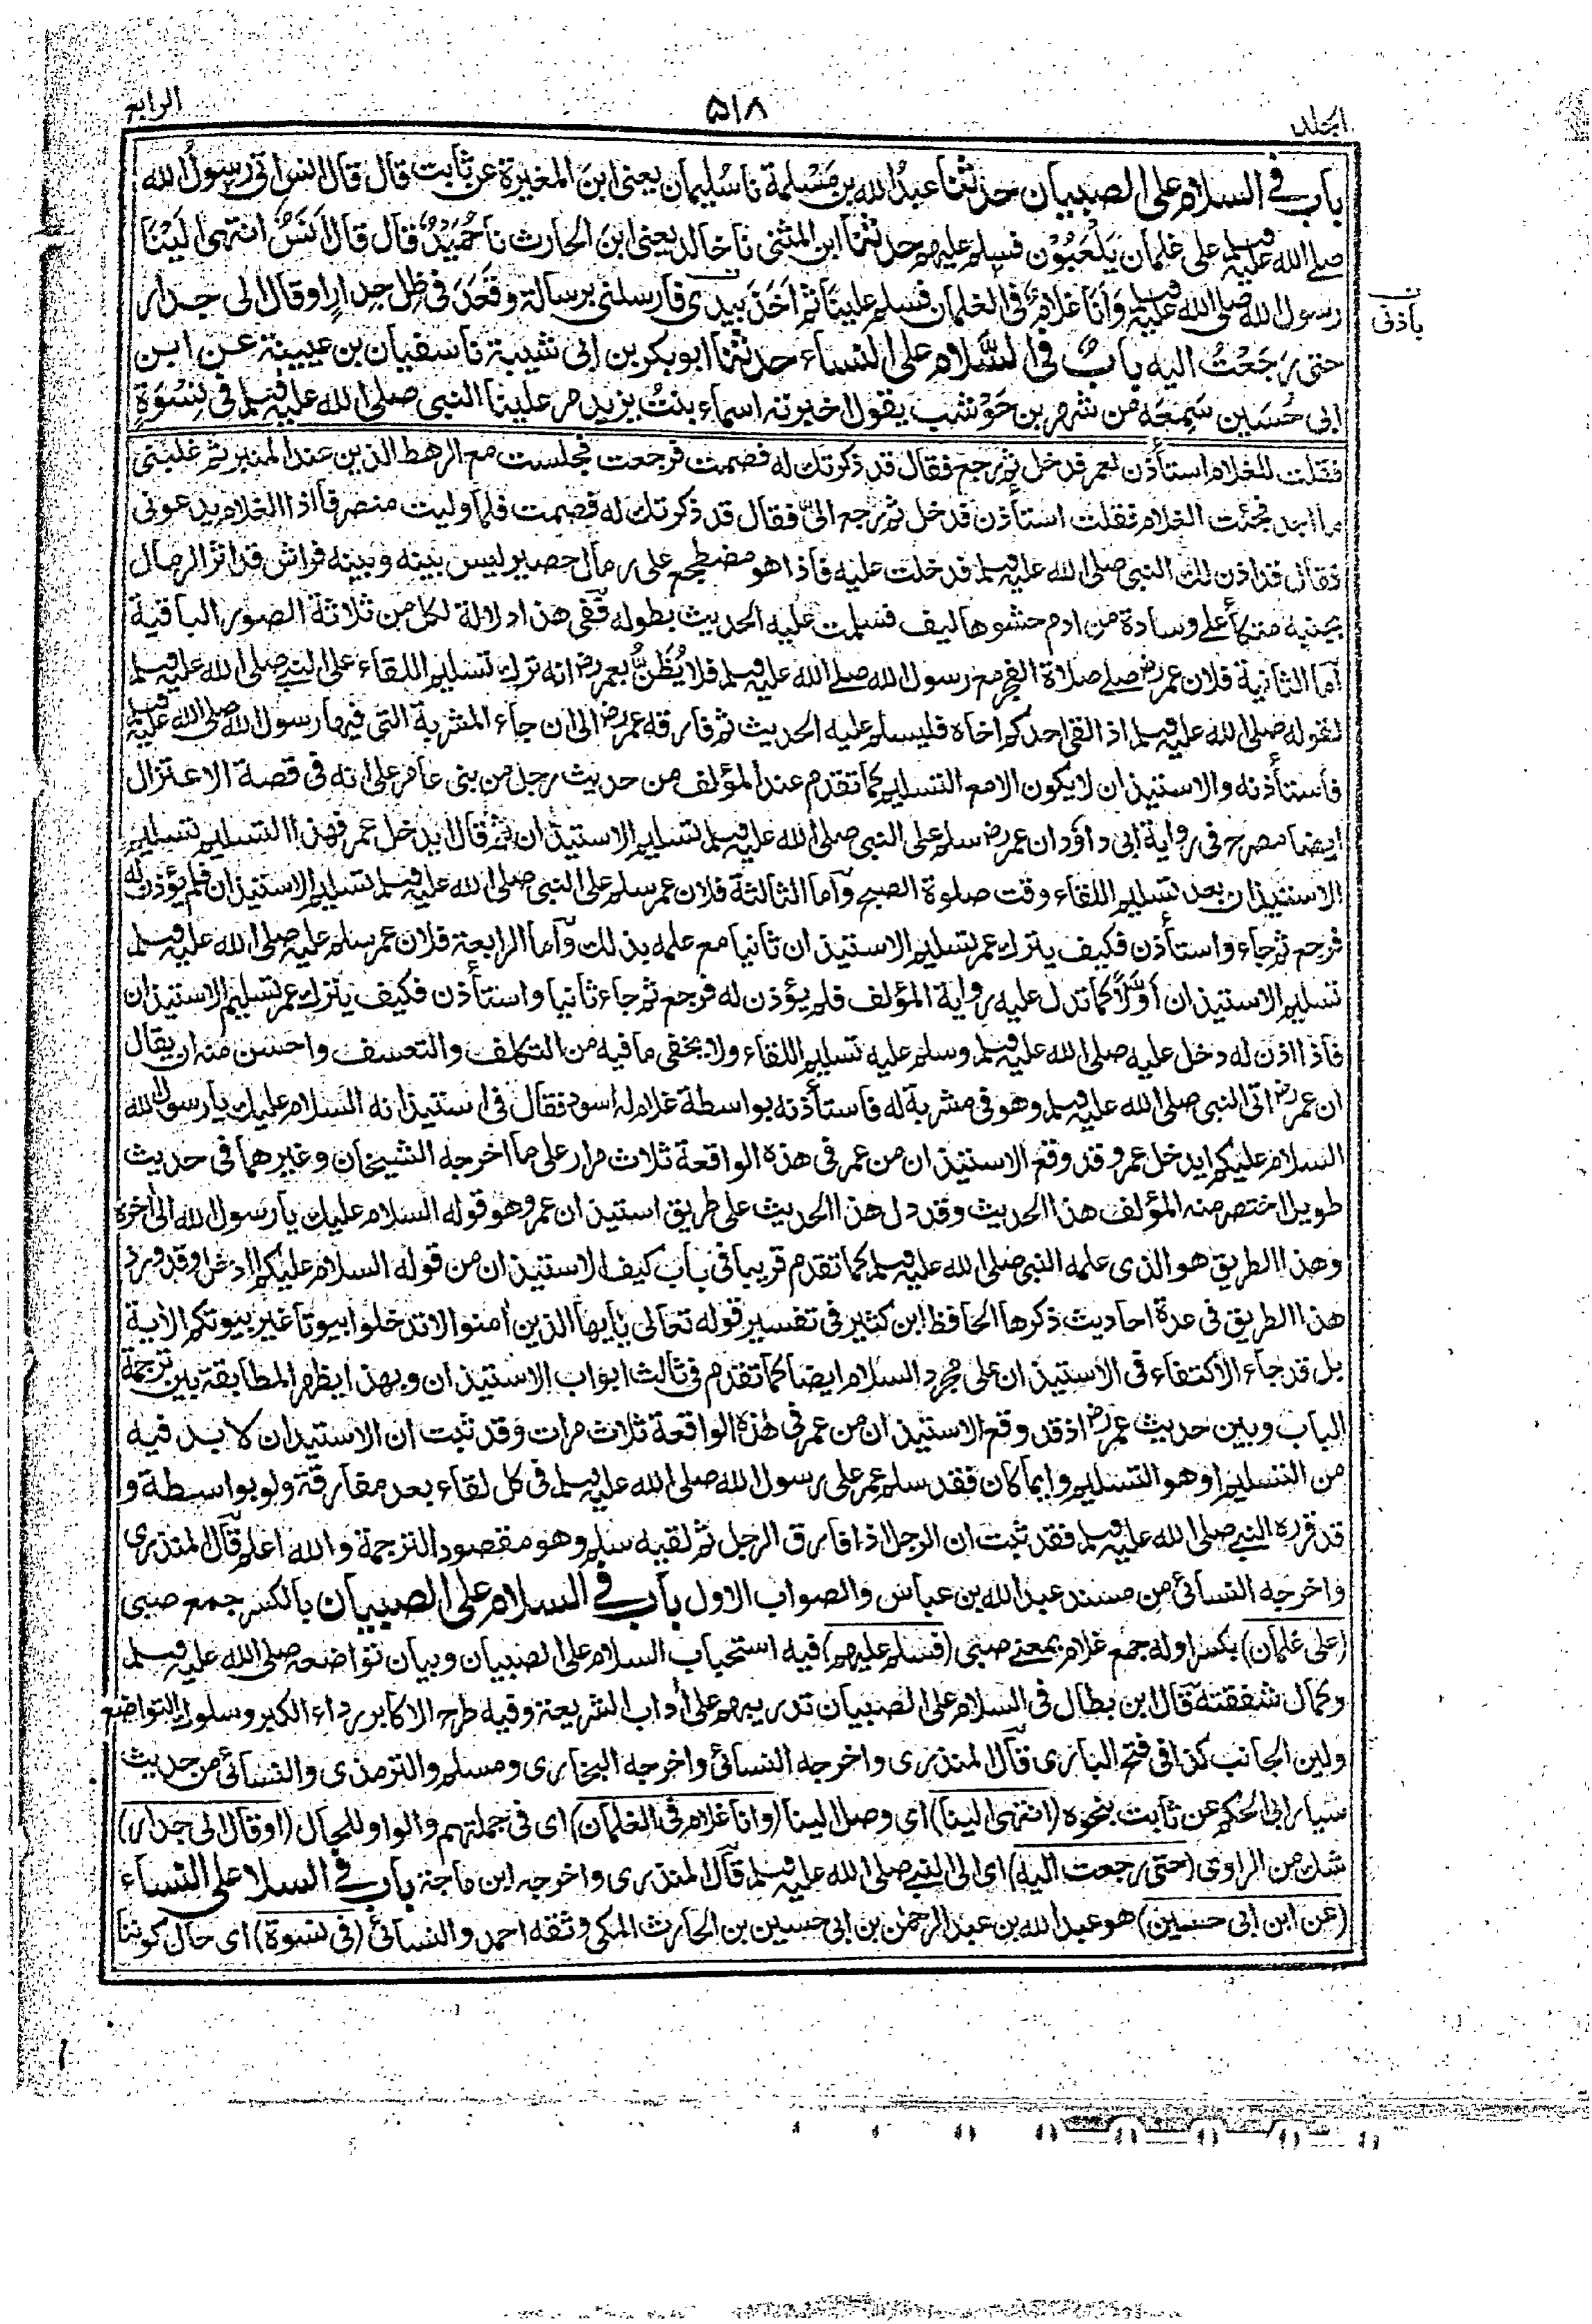 المجلد ٥١٨ الرابع
باب في السلام على الصبيان حدثنا عبد الله بن مَسْلمة نا سُليمان يعني ابن المغيرة عن ثابت قال قال انس اتى رسولُ الله
صلے الله عليه وسلم على غلمان يَلْعَبُوْن فسلم عليهم حدثنا ابن المثنى نا خالد يعني ابن الحارث نا حُمَيْدٌ قال قال اَنَسٌ انتهى اِلَيْنَا
رسول الله صلى الله عليه وسلم وَاَنَا غلامٌ فى الغلمان فسلم علينا ثم اَخَذَ بيدى فارسلنى برسالة وقَعَدَ فى ظِل جِدارٍ او قال الى جدار
بأذنى
حتى رَجَعْتُ اليه بابٌ في السَّلام على النساء حدثنا ابو بكر بن ابى شيبة نا سفيان بن عيينة عن ابن
ابى حُسَين سَمِعَه من شهر بن حَوْشب يقول اخبرته اسماء بنتُ يزيد مر علينا النبى صلى الله عليه وسلم فى نِسْوَةٍ
فقلت للغلام استأذن لعمر فدخل ثم رجع فقال قد ذكرتك له فصمت فرجعت فجلست مع الرهط الذين عند المنبر ثم غلبنى
ما اجد فجئت الغلام فقلت استأذن فدخل ثم رجع الىّ فقال قد ذكرتك له فصمت فلما وليت منصرفا اذا الغلام يدعونى
فقال قد اذن لك النبى صلى الله عليه وسلم فدخلت عليه فاذا هو مضطجع على رمال حصير ليس بينه وبينه فراش قد اثر الرمال
بجنبه متكأ على وسادة من ادم حشوها ليف فسلمت عليه الحديث بطوله ففى هذا دلالة لكل من ثلاثة الصور الباقية
اما الثانية فلان عمر رض صلے صلاة الفجر مع رسول الله صلے الله عليه وسلم فلا يُظَنُّ بعمر رض انه ترك تسليم اللقاء على النبے صلى الله عليه وسلم
لقوله صلى الله عليه وسلم اذا لقى احدكم اخاه فليسلم عليه الحديث ثم فارقه عمر رض الى ان جاء المشربة التى فيها رسول الله صلى الله عليه وسلم
فاستأذنه والاستيذان لا يكون الا مع التسليم كما تقدم عند المؤلف من حديث رجل من بنى عامر على انه فى قصة الاعتزال
ايضا مصرح فى رواية ابى داؤد ان عمر رض سلم على النبى صلى الله عليه وسلم تسليم الاستيذان ثم قال ايدخل عمر فهذا التسليم تسليم
الاستيذان بعد تسليم اللقاء وقت صلوة الصبح واما الثالثة فلان عمر سلم على النبى صلى الله عليه وسلم تسليم الاستيذان فلم يؤذن له
فرجع ثم جاء واستأذن فكيف يترك عمر تسليم الاستيذان ثانيا مع علمه بذلك واما الرابعة فلان عمر سلم عليه صلى الله عليه وسلم
تسليم الاستيذان اَوَّلاً كما تدل عليه رواية المؤلف فلم يؤذن له فرجع ثم جاء ثانيا واستأذن فكيف يترك عمر تسليم الاستيذان
فاذا اذن له دخل عليه صلى الله عليه وسلم وسلم عليه تسليم اللقاء ولا يخفى ما فيه من التكلف والتعسف واحسن منه ان يقال
ان عمر رض اتى النبى صلى الله عليه وسلم وهو فى مشربة له فاستأذنه بواسطة غلام له اسود فقال فى استيذانه السلام عليك يا رسول الله
السلام عليكم ايدخل عمر وقد وقع الاستيذان من عمر فى هذه الواقعة ثلاث مرار على ما اخرجه الشيخان وغيرهما فى حديث
طويل اختصر منه المؤلف هذا الحديث وقد دل هذا الحديث على طريق استيذان عمر وهو قوله السلام عليك يا رسول الله الى اخره
وهذا الطريق هو الذى علمه النبى صلى الله عليه وسلم كما تقدم قريبا فى باب كيف الاستيذان من قوله السلام عليكم اادخل وقد ورد
هذا الطريق فى عدة احاديث ذكرها الحافظ ابن كثير فى تفسير قوله تعالى يايها الذين امنوا لا تدخلوا بيوتا غير بيوتكم الاية
بل قد جاء الاكتفاء فى الاستيذان على مجرد السلام ايضا كما تقدم فى ثالث ابواب الاستيذان وبهذا يظهر المطابقة بين ترجمة
الباب وبين حديث عمر رض اذ قد وقع الاستيذان من عمر فى هٰذه الواقعة ثلاث مرات وقد ثبت ان الاستيذان لا بد فيه
من التسليم او هو التسليم وايما كان فقد سلم عمر على رسول الله صلى الله عليه وسلم فى كل لقاء بعد مفارقة ولو بواسطة و
قد قرره النبے صلى الله عليه وسلم فقد ثبت ان الرجل اذا فارق الرجل ثم لقيه سلم وهو مقصود الترجمة والله اعلم قال المنذرى
واخرجه النسائى من مسند عبد الله بن عباس والصواب الاول باب في السلام على الصبيان بالكسر جمع صبى
(على غلمان) بكسر اوله جمع غلام بمعنے صبى (فسلم عليهم) فيه استحباب السلام على الصبيان وبيان تواضعه صلى الله عليه وسلم
وكمال شفقته قال ابن بطال فى السلام على الصبيان تدريبهم على اٰداب الشريعة وفيه طرح الاكابر رداء الكبر وسلوك التواضع
ولين الجانب كذا فى فتح البارى قال المنذرى واخرجه النسائى واخرجه البخارى ومسلم والترمذى والنسائى من حديث
سيار ابى الحكم عن ثابت بنحوه (انتهى الينا) اى وصل الينا (وانا غلام فى الغلمان) اى فى جملتهم والواو للحال (او قال الى جدار)
شك من الراوى (حتى رجعت اليه) اى الى النبے صلى الله عليه وسلم قال المنذرى واخرجه ابن ماجة باب في السلام على النساء
(عن ابن ابى حسين) هو عبد الله بن عبد الرحمٰن بن ابى حسين بن الحارث المكى وثقه احمد والنسائى (فى نسوة) اى حال كوننا